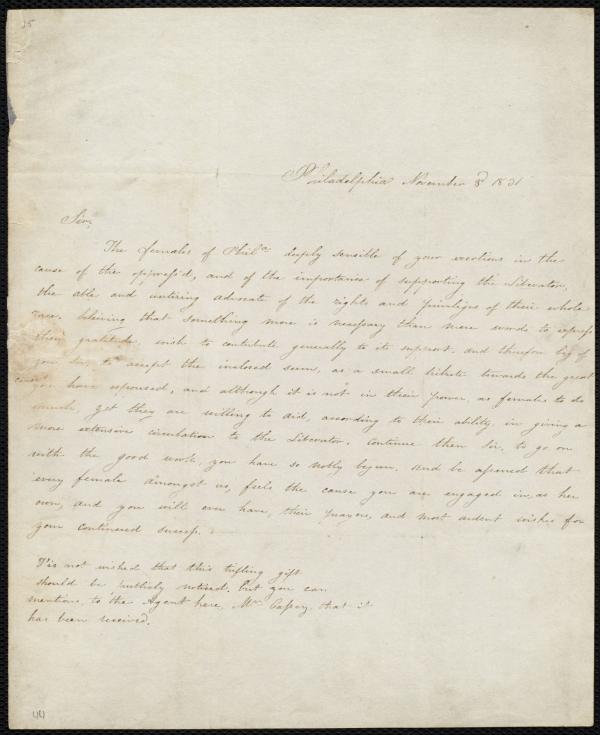 25
Philadelphia November 8 1831
Sir,
The females of Phila deeply sensible of your exertions in the
cause of the oppress'd, and of the importance of supporting the Liberator,
the able and untiring advocate of the rights and privileges of their whole
race, believing that something more is necessary than mere words to express
their gratitude, wish to contribute generally to its support, and therefore beg of
you Sir, to accept the inclosed sum, as a small tribute towards the great
cause
you have espoused, and although it is not in their power, as females to do
much, yet they are willing to aid, according to their ability, in giving a
more extensive circulation to the Liberator. Continue then Sir, to go on
with the good work, you have so nobly begun, and be assured that
every female amongst us, feels the cause you are engaged in, as her
own, and you will ever have, their prayers, and most ardent wishes for
your continued success.
T'is not wished that this trifling gift
should be publicly noticed, but you can
mention, to the Agent here, Mr. Cassey, that it
has been received.
44